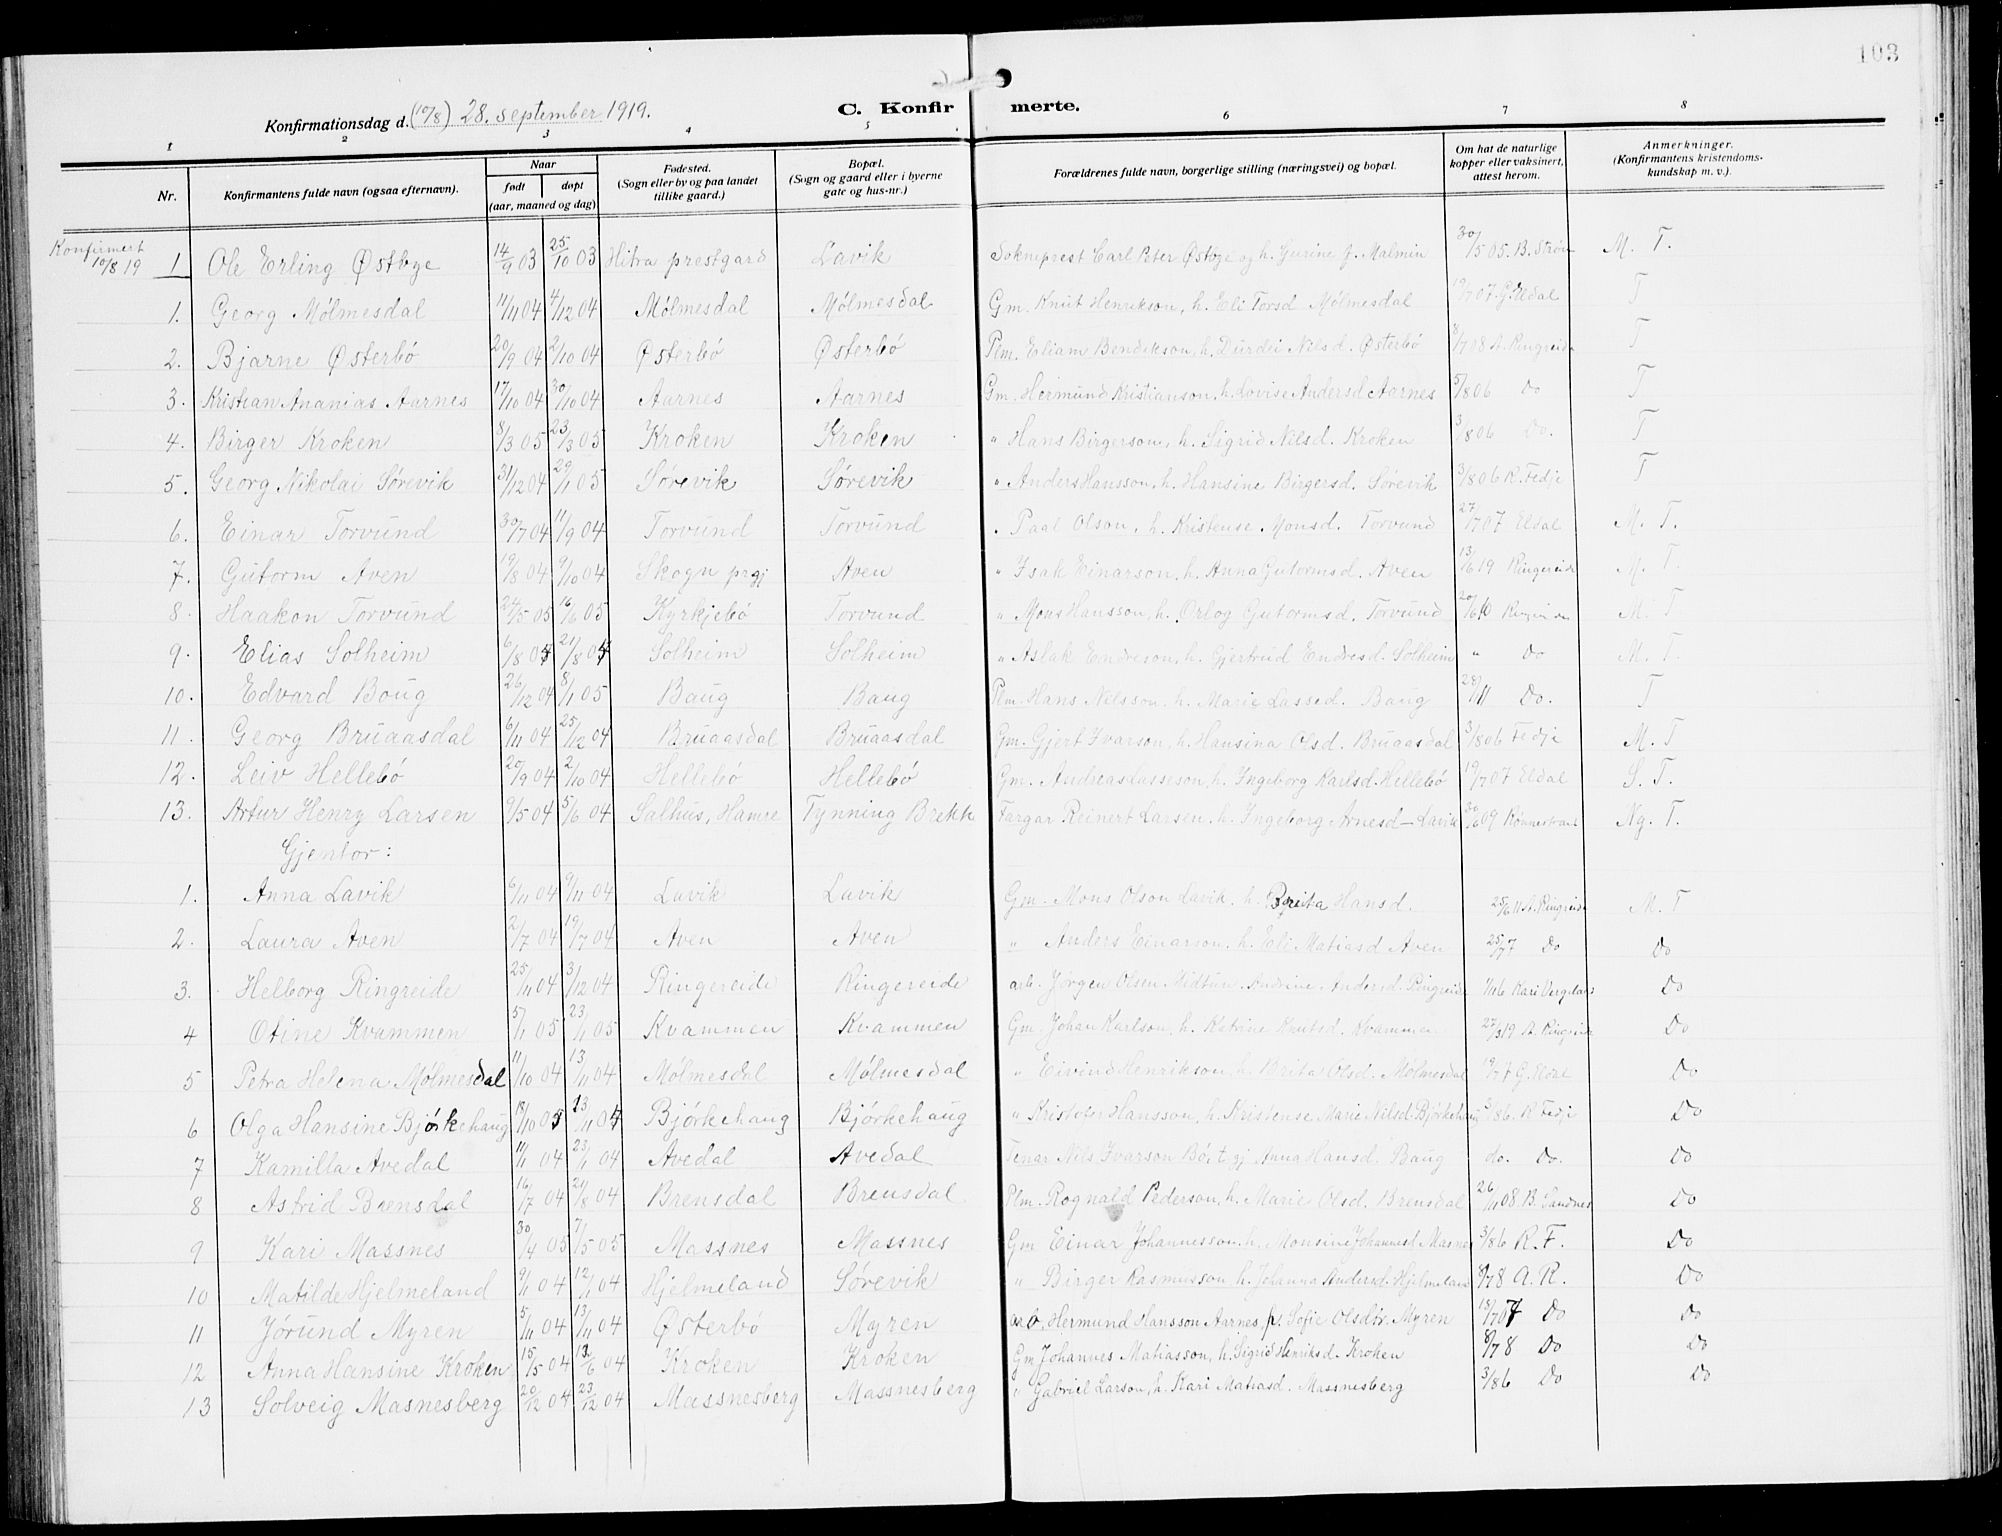 103
Konfirmationsdag d. (10/8) 28. september 1919.
C. Konfirmerte.
1 2 3 4 5 6 7 8
Nr. Konfirmantens fulde navn (ogsaa efternavn). Naar født døpt (aar, maaned og dag) Fødested. (Sogn eller by og paa landet tillike gaard.) Bopæl. (Sogn og gaard eller i byerne gate og hus-nr.) Forældrenes fulde navn, borgerlige stilling (næringsvei) og bopæl. Om hat de naturlige kopper eller vaksinert, attest herom. Anmerkninger. (Konfirmantens kristendomskundskap m. v.).
Konfirmert 10/8 19
1 Ole Erling Østbøe 14/9 03 25/10 03 Hitra prestgard Lavik Sokneprest Carl Peter Østbøe og h. Gurine f. Malmin 30/5 05. B. Strøm M. T.
1. Georg Mølmesdal 11/11 04 4/12 04 Mølmesdal Mølmesdal Gm. Knut Henrikson, h. Eli Torsd Mølmesdal 19/7 07. G. Eldal T
2. Bjarne Østerbø 20/9 04 2/10 04 Østerbø Østerbø Plm. Erliam Bendikson, h. Durdei Nilsd. Østerbø 8/7 08 A. Ringreide T
3. Kristian Ananias Aarnes 17/10 04 30/10 04 Aarnes Aarnes Gm. Hermund Kristianson, h. Lovise Andersd Aarnes 5/8 06 Do T
4. Birger Kroken 8/3 05 23/3 05 Kroken Kroken " Hans Birgerson, h. Sigrid Nilsd. Kroken 3/8 06 Do. T
5. Georg Nikolai Sørevik 31/12 04 29/1 05 Sørevik Sørevik " Anders Hansson, h. Hansine Birgersd. Sørevik 3/8 06 R. Fedje T
6. Einar Torvund 30/7 04 11/9 04 Torvund Torvund " Paal Olson, h. Kristense Monsd. Torvund 27/7 07 Eldal M. T.
7. Gutorm Aven 19/8 04 9/10 04 Skogn prgj Aven " Isak Einarson, h. Anna Gutormsd. Aven 13/6 19 Ringereide M. T.
8. Haakon Torvund 24/5 05 16/6 05 Kyrkjebø Torvund " Mons Hansson, h. Orlog Gutormsd. Torvund 20/6 10 M. T
9. Elias Solheim 6/8 04 21/8 04 Solheim Solheim " Aslak Endreson, h. Gjertrud Endresd. Solheim " Do M. T.
10. Edvard Boug 26/12 04 8/1 05 Baug Baug Plm. Hans Nilsson. h. Marie Lassed. Baug 28/11 Do. T
11. Georg Bruaasdal 6/11 04 25/12 04 Bruaasdal Bruaasdal Gm. Gjert Ivarson, h. Hansina Olsd. Bruaasdal 3/8 06 Fedje M. T
12. Leiv Hellebø 20/9 04 2/10 04 Hellebø Hellebø Gm. Andreas Lasseson, h. Ingeborg Karlsd. Hellebø 19/7 07 Eldal S. T.
13. Artur Henry Larsen 9/5 04 5/6 04 Salhus, Hamre Tynning Brekk Fargar Reinert Larsen, h. Ingeborg Arnesd - Lavik 30/6 09 Ng. T.
Gjentor:
1. Anna Lavik 6/11 04 9/11 04 Lavik Lavik Gm. Mons Olson Lavik. h. Brita Hansd. 25/6 11 A. Ringreide M. T
2. Laura Aven 2/7 04 19/7 04 Aven Aven " Anders Einarson. h. Eli Matiasd Aven 25/7 7 Do Do
3. Helborg Ringreide 25/11 04 3/12 04 Ringereide Ringereide arb. Jørgen Olsen Midtun, Andrine Andersd. Ringreide 1/11 6 Kari Do
4 Otine Kvammen 5/1 05 23/1 05 Kvammen Kvammen Gm. Johan Karlson, h. Katrine Knutsd. Kvammen 27/3 19 A. Ringreide Do
5 Petra Helena Mølmesdal 11/10 04 13/11 04 Mølmesdal Mølmesdal " Eivind Henrikson, h. Brita Olsd. Mølmesdal 19/7 7 G. Eldal Do
6 Olga Hansine Bjørkehaug 18/10 04 13/11 04 Bjørkehaug Bjørkehaug " Kristofer Hansson, h. Kristense Marie Nilsd. Bjørkehaug 3/8 6. R. Fedje Do
7 Kamilla Avedal 11/1 04 23/1 04 Avedal Avedal Tenar Nils Ivarson Bøit, gj Anna Hansd. Baug do. Do. Do
8 Astrid Brensdal 16/7 04 21/8 04 Brensdal Brensdal Plm. Rognald Pederson, h. Marie Olsd. Brensdal 26/1 08 B. Sandnes Do
9 Kari Massnes 30/4 05 7/5 05 Massnes Massnes Gm Einar Johannesson. h. Monsine Johannesd. Masnes 3/8 6 R. F. Do
10 Matilde Hjelmeland 9/1 04 12/1 04 Hjelmeland Sørevik " Birger Rasmusson h. Johanna Andersd. Hjelmeland 8/7 8 A. R. Do
11 Jørund Myren 5/11 04 13/11 04 Østerbø Myren arb. Hermund Hansson Aarnes, p. Sofie Olsdør. Myren 18/7 07 Do Do
12 Anna Hansine Kroken 15/5 04 12/6 04 Kroken Kroken Gm Johannes Matiasson, h. Sigrid Henriksd. Kroken 8/7 8 Do Do
13 Solveig Masnesberg 20/12 04 23/12 04 Massnesberg Massnesberg " Gabriel Larson, h. Kari Matiasd. Massnesberg 3/8 6 Do Do